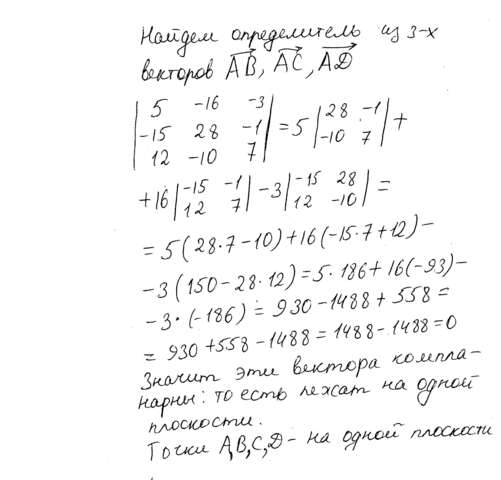 Найдем определитель из 3-х
векторов AB, AC, AD
| 5 -16 -3 |
| -15 28 -1 | = 5 | 28 -1 | +
| 12 -10 7 | | -10 7 |
+16 | -15 -1 | -3 | -15 28 | =
| 12 7 | | 12 -10 |
= 5(28·7-10)+16(-15·7+12)-
-3(150-28·12)=5·186+16(-93)-
-3·(-186) = 930-1488+558=
= 930+558-1488=1488-1488=0
Значит эти вектора компла-
нарны: то есть лежат на одной
плоскости.
Точки A,B,C,D - на одной плоскости